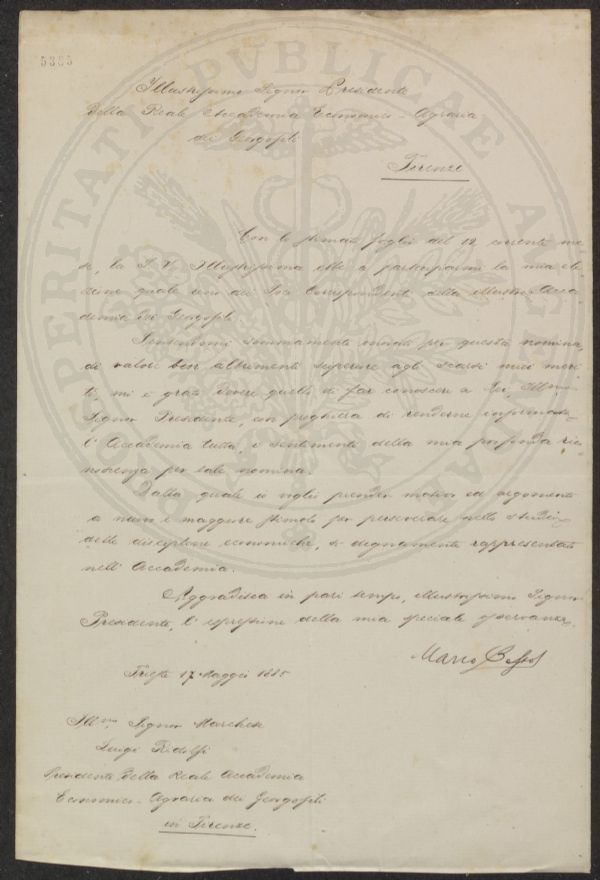 5365
PROSPERITATI PVBLICAE AVGENDAE
Illustrissimo Signor Presidente
della Reale Accademia Economico-Agraria
dei Georgofili
Firenze
Con lo stimato foglio del 12 corrente me
se, la S. V. Illustrissima ebbe a parteciparmi la mia ele
zione quale uno dei Soci Corrispondenti della illustre Acca
demia dei Georgofili.
Sentendomi sommamente onorato per questa nomina,
di valore ben altrimenti superiore agli scarsi miei meri
ti, mi è grato dovere quello di far conoscere a Lei, Ill.mo
Signor Presidente, con preghiera di renderne
l'Accademia tutta, i sentimenti della mia profonda rico
noscenza per tale nomina.
Dalla quale io voglio prender motivo ed argomento
a nuovo e maggiore stimolo per perseverare nello studio
delle discipline economiche, sì degnamente rappresentate
nell'Accademia.
Aggradisca in pari tempo, illustrissimo Signor
Presidente, l'espressione della mia speciale osservanza.
Marco Besso
Trieste 17 Maggio 1885
Ill.mo Signor Marchese
Luigi Ridolfi
Presidente della Reale Accademia
Economico-Agraria dei Georgofili
in Firenze.